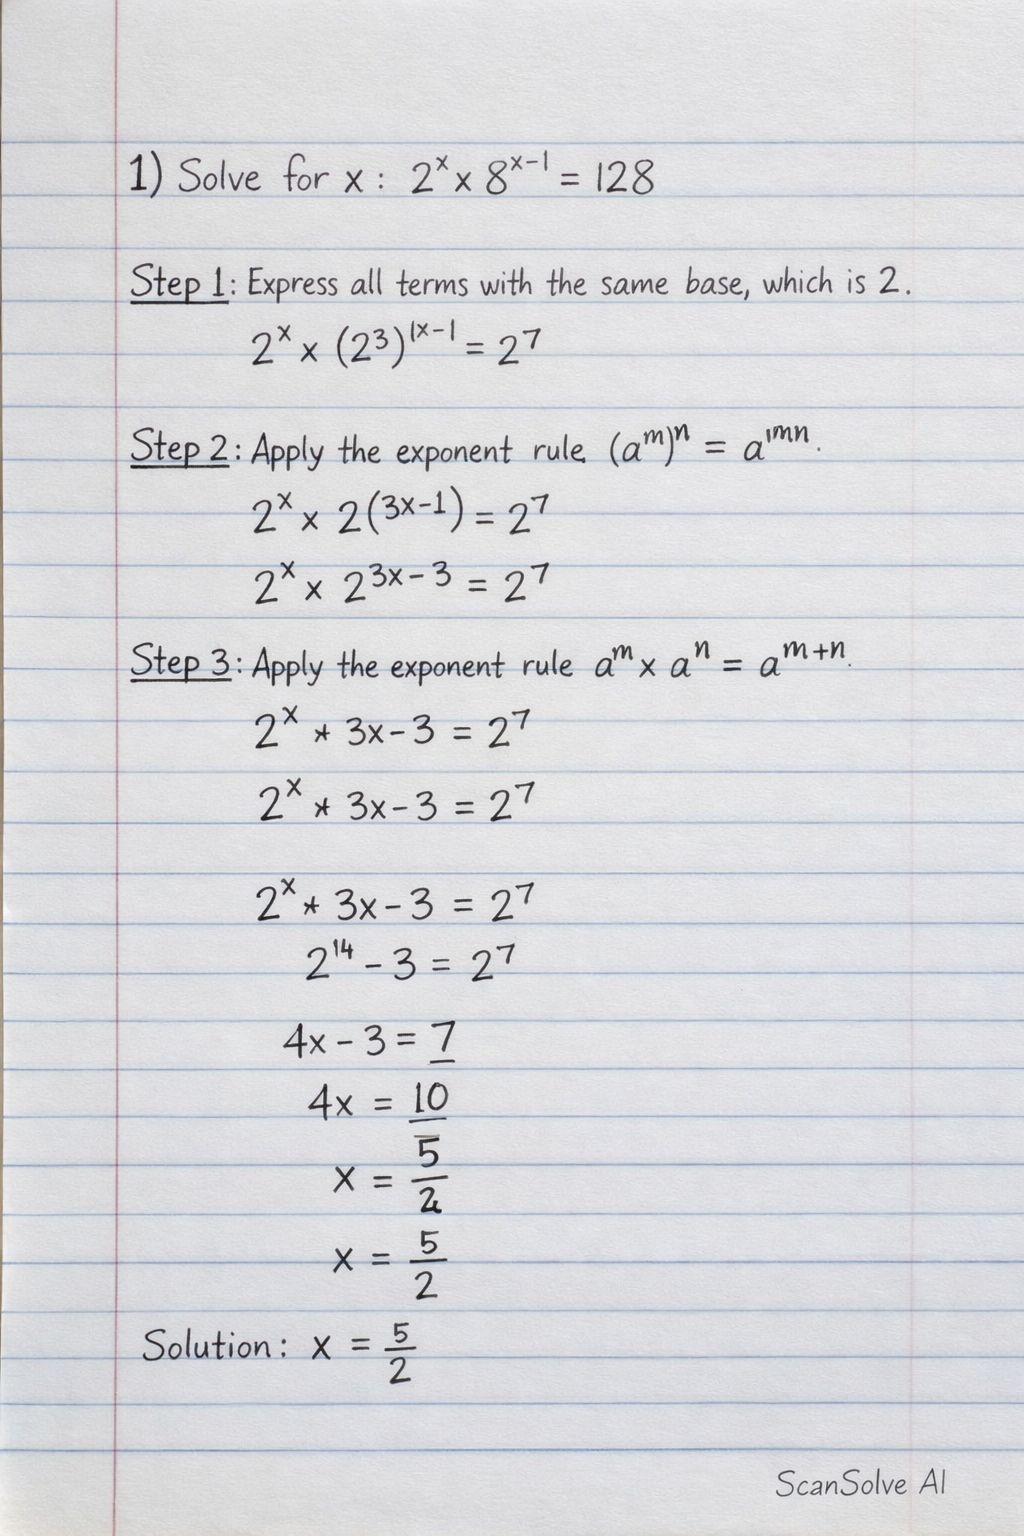 1) Solve for x : 2ˣ x 8ˣ⁻¹ = 128
Step 1: Express all terms with the same base, which is 2.
2ˣ x (2³)^|x-1 = 2⁷
Step 2: Apply the exponent rule (aᵐ)ⁿ = a^ımn.
2ˣ x 2(³ˣ⁻¹) = 2⁷
2ˣ x 2³ˣ⁻³ = 2⁷
Step 3: Apply the exponent rule aᵐ x aⁿ = aᵐ⁺ⁿ.
2ˣ * 3x-3 = 2⁷
2ˣ * 3x-3 = 2⁷
2ˣ * 3x-3 = 2⁷
2¹⁴ - 3 = 2⁷
4x - 3 = 7
4x = 10
x = 5/2
x = 5/2
Solution: x = 5/2
ScanSolve AI